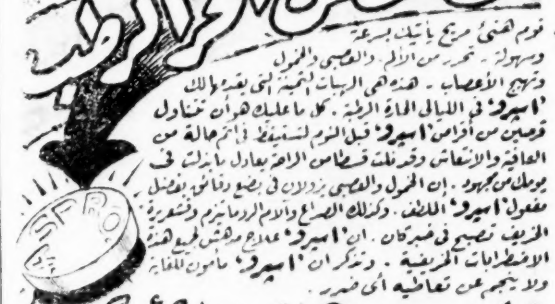 الحر الرطب
نوم هنئ مريح يأتيك بسرعة
وسهولة - تحرر من الألم - والعصبى والخمول
وتهيج الأعصاب - هذه هى الهبات الثمينة التى يقدمها لك
"اسبرو" فى الليالى الحارة الرطبة. كل ما عليك هو أن تتناول
قرصين من أقراص "اسبرو" قبل النوم لتستيقظ فى أتم حالة من
العافية والانتعاش وقد نلت قسطا من الراحة يعادل ما بذلت فى
يومك من مجهود. إن الخمول والعصبى يزولان فى بضع دقائق بفضل
مفعول "اسبرو" الملطف. وكذلك الصداع وآلام الروماتيزم وقشعريرة
الخريف تصبح فى خبر كان. ان "اسبرو" علاج مدهش لجميع هذه
الاضطرابات الخريفية. وتذكر ان "اسبرو" مأمون للغاية
ولا ينجم عن تعاطيه أى ضرر.
ASPRO